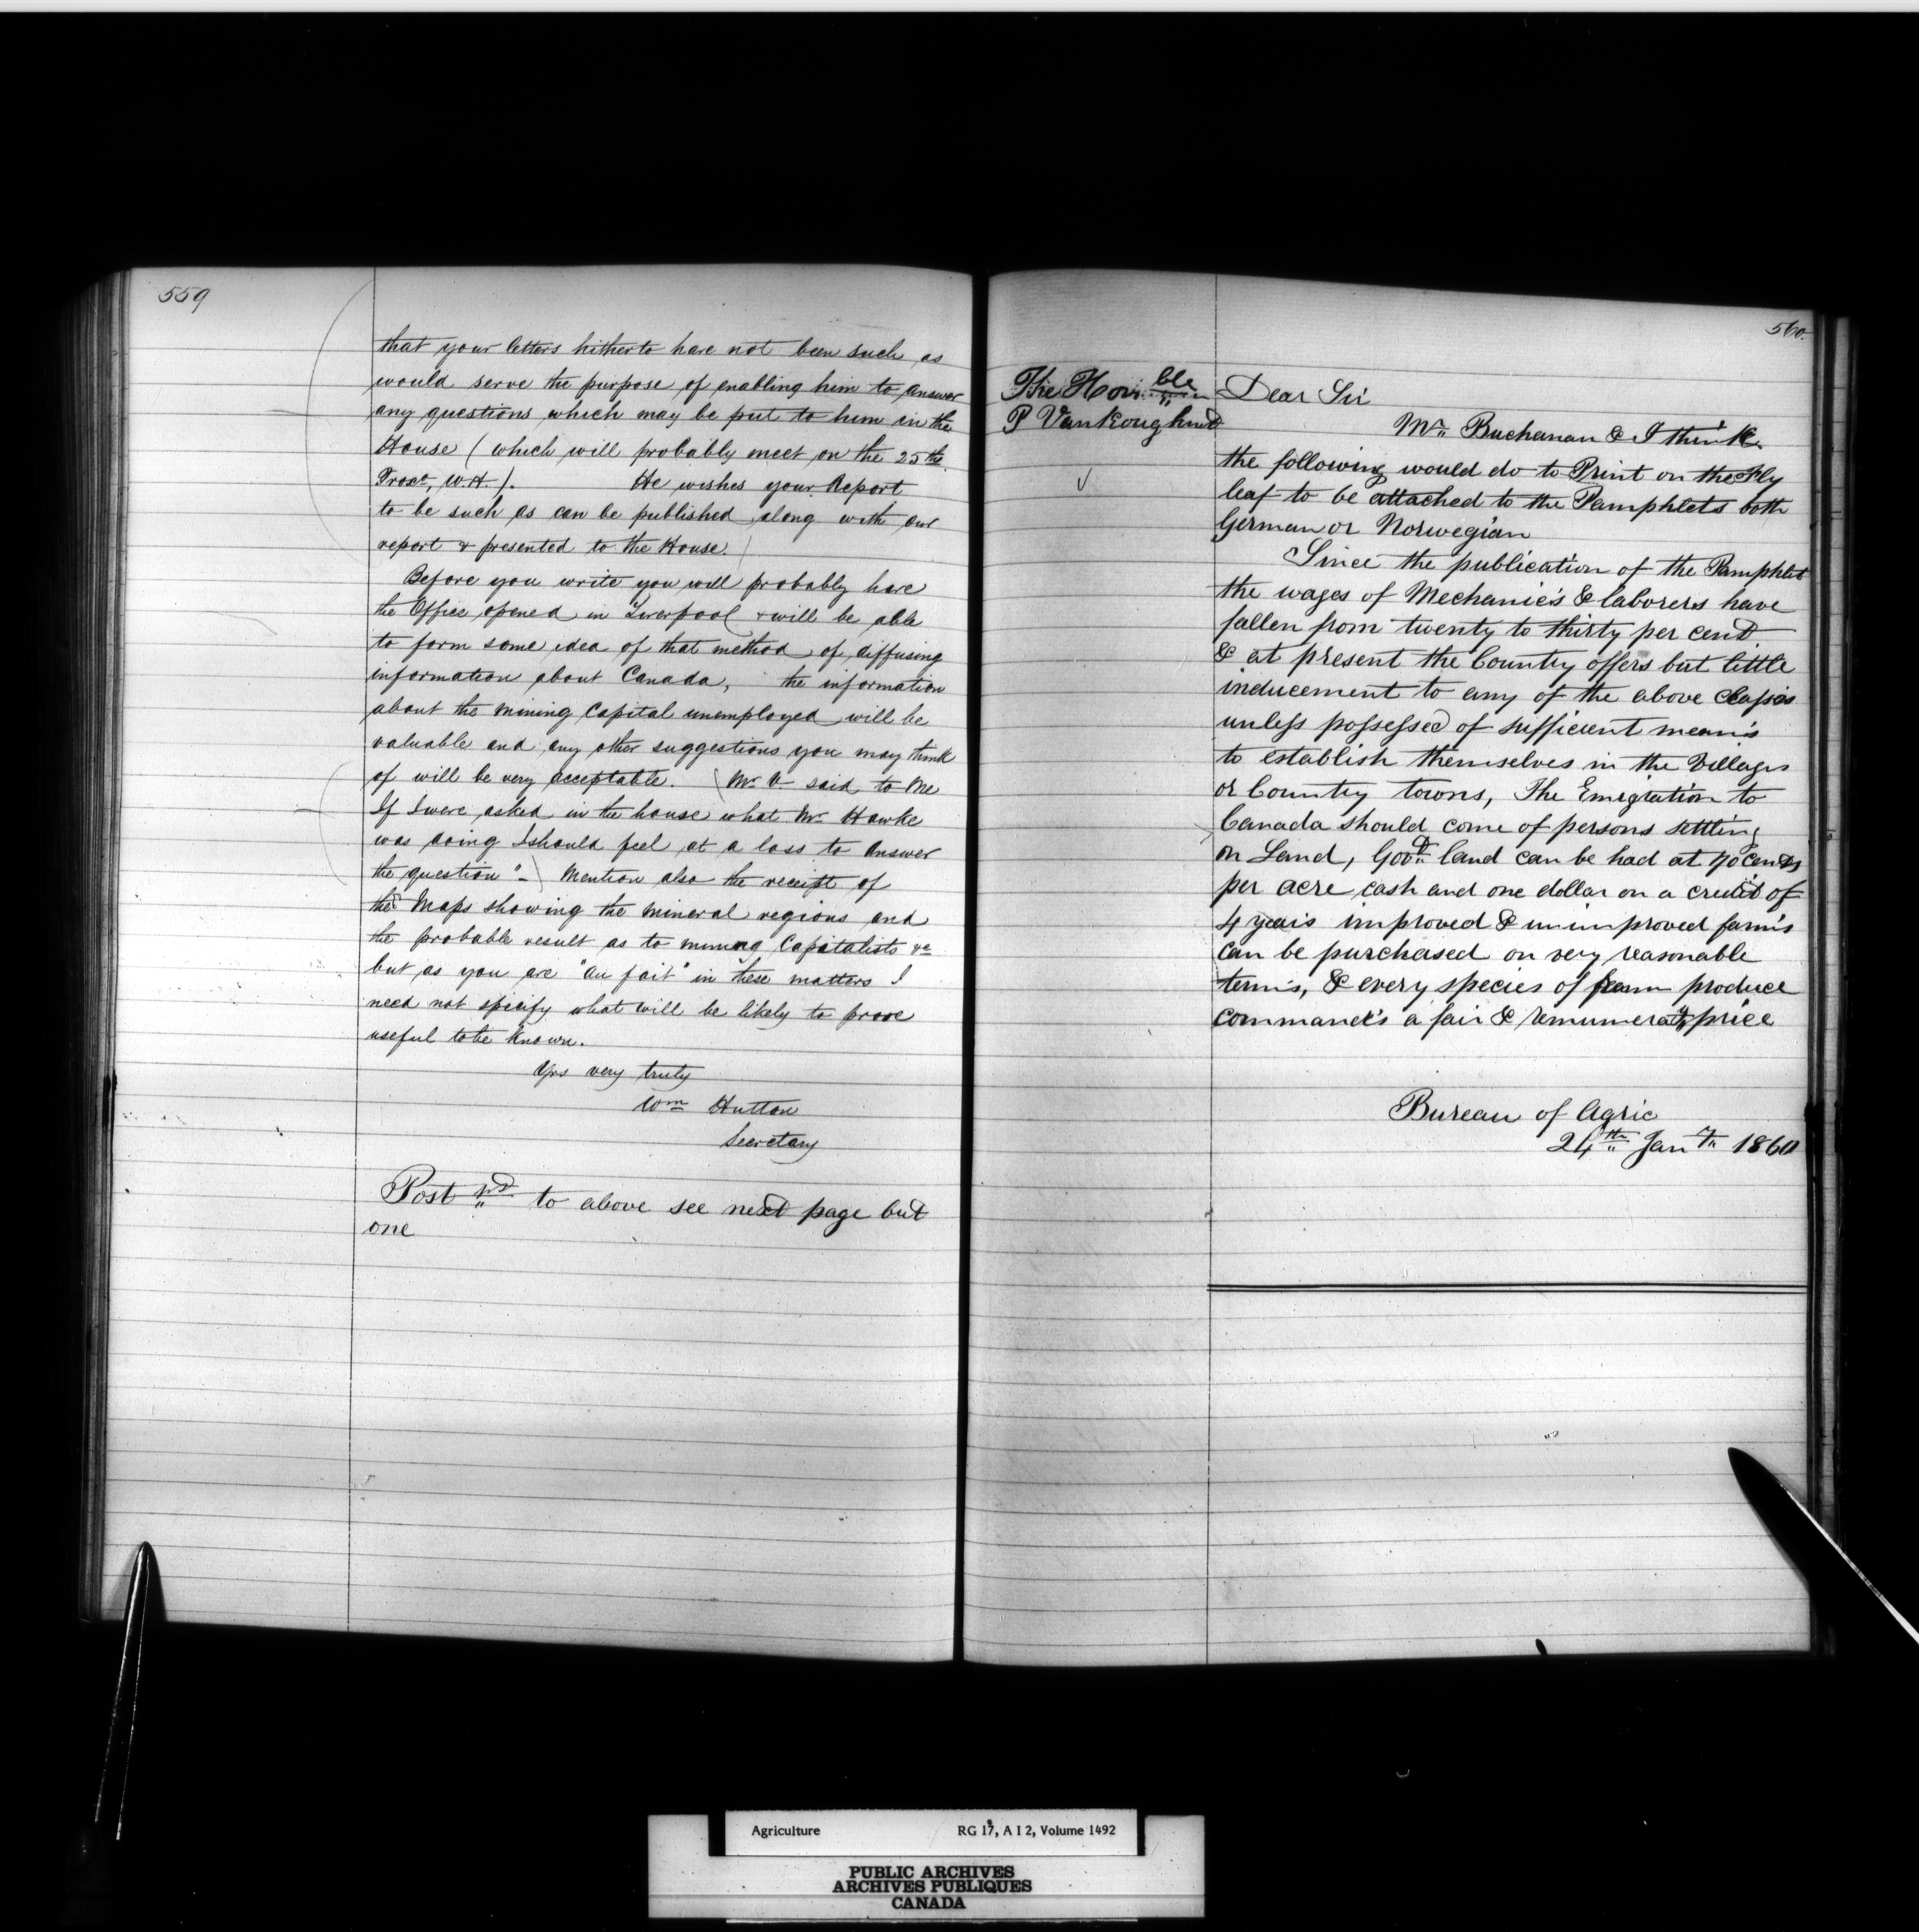 559
that your letters hitherto have not been such as
would serve the purpose of enabling him to answer
any questions which may be put to him in the
House (which will probably meet on the 25th
W.H.). He wishes your Report
to be such as can be published along with our
report & presented to the House.
Before you write you will probably have
the Office opened in Liverpool & will be able
to form some idea of that method of diffusing
information about Canada, the information
about the mining Capital unemployed will be
valuable and any other suggestions you may think
of will be very acceptable. (Mr. V. said to me
If I were asked in the house what Mr. Hawke
was doing I should feel at a loss to answer
the question"_) Mention also the receipt of
the Maps showing the mineral regions and
the probable result as to mining Capitalists &c
but as you are "au fait" in these matters I
need not specify what will be likely to prove
useful to be known.
Yrs very truly
Wm Hutton
Secretary
Post to above see next page but
one
560.
The Honble
P Vankoughnet
Dear Sir
Mr. Buchanan & I think
the following would do to Print on the Fly
leaf to be attached to the Pamphlets both
German or Norwegian
Since the publication of the Pamphlet
the wages of Mechanics & laborers have
fallen from twenty to thirty per cent
& at present the Country offers but little
inducement to any of the above classes
unless possessed of sufficient means
to establish themselves in the Villages
or Country towns, The Emigration to
Canada should come of persons settling
on Land, land can be had at 70 cents
per acre cash and one dollar on a credit of
4 years improved & unimproved farms
can be purchased on very reasonable
terms, & every species of farm produce
commands a fair & price
Bureau of Agric
24th Jany 1860
Agriculture RG 17, A I 2, Volume 1492
PUBLIC ARCHIVES
ARCHIVES PUBLIQUES
CANADA